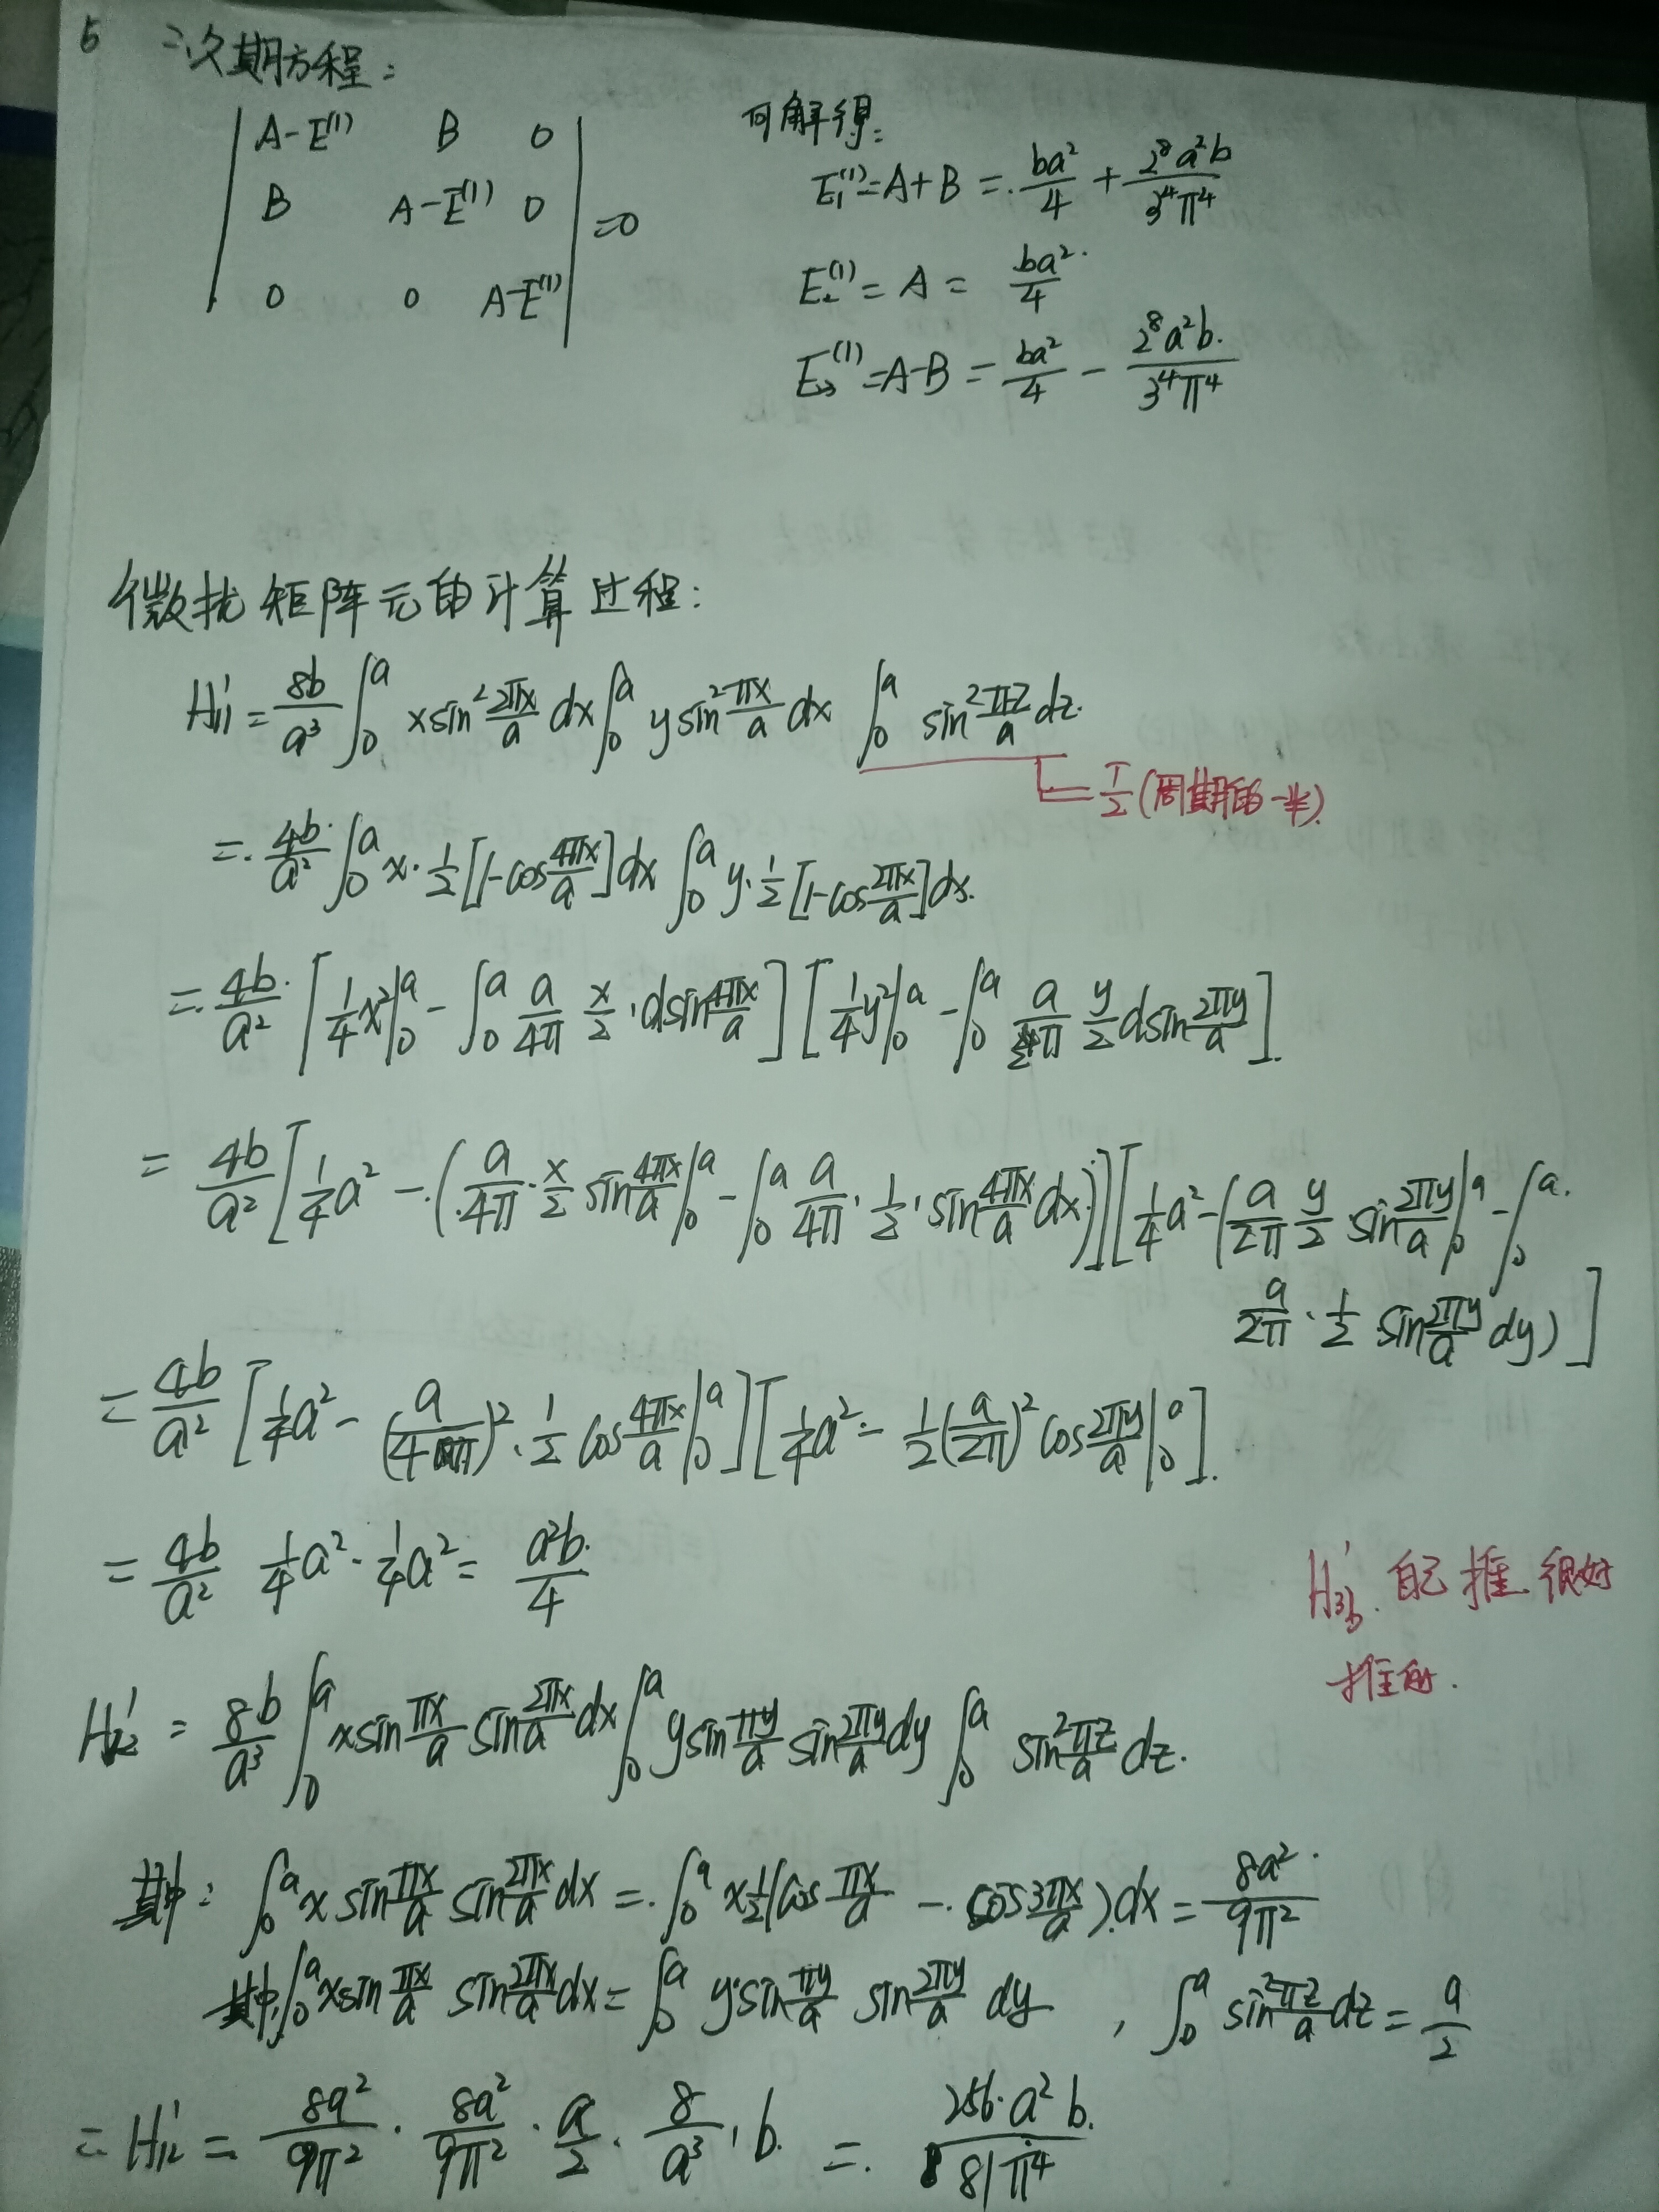 5 二次期方程:
| A-E⁽¹⁾ B 0 |
| B A-E⁽¹⁾ 0 | =0
| 0 0 A-E⁽¹⁾ |
可解得:
E₁⁽¹⁾=A+B = ba²/4 + 2⁸a²b/3⁴π⁴
E₂⁽¹⁾= A = ba²/4
E₃⁽¹⁾=A-B = ba²/4 - 2⁸a²b/3⁴π⁴
微扰矩阵元的计算过程:
H₁₁' = 8b/a³ ∫₀ᵃ x sin² 2πx/a dx ∫₀ᵃ y sin² πx/a dx ∫₀ᵃ sin² πz/a dz.
= T/2 (周期的一半).
= 4b/a² ∫₀ᵃ x·1/2 [1-cos 4πx/a] dx ∫₀ᵃ y·1/2 [1-cos 2πx/a] dx.
= 4b/a² [1/4 x²|₀ᵃ - ∫₀ᵃ a/4π x/2 · dsin 4πx/a] [1/4 y²|₀ᵃ - ∫₀ᵃ a/2π y/2 dsin 2πy/a].
= 4b/a² [1/4 a² - (a/4π · x/2 sin 4πx/a |₀ᵃ - ∫₀ᵃ a/4π · 1/2 · sin 4πx/a dx)] [1/4 a² - (a/2π y/2 sin 2πy/a |₀ᵃ - ∫₀ᵃ
a/2π · 1/2 sin 2πy/a dy)]
= 4b/a² [1/4 a² - (a/4π)² · 1/2 cos 4πx/a |₀ᵃ] [1/4 a² - 1/2 (a/2π)² cos 2πy/a |₀ᵃ].
= 4b/a² 1/4 a² · 1/4 a² = a²b/4
H₃₃' 自己推 很好
推的.
H₁₂' = 8b/a³ ∫₀ᵃ x sin πx/a sin 2πx/a dx ∫₀ᵃ y sin πy/a sin 2πy/a dy ∫₀ᵃ sin² πz/a dz.
其中: ∫₀ᵃ x sin πx/a sin 2πx/a dx = ∫₀ᵃ x 1/2 (cos πx/a - cos 3πx/a) dx = 8a²/9π²
其中 ∫₀ᵃ x sin πx/a sin 2πx/a dx = ∫₀ᵃ y sin πy/a sin 2πy/a dy , ∫₀ᵃ sin² πz/a dz = a/2
= H₁₂' = 8a²/9π² · 8a²/9π² · a/2 · 8/a³ · b. = 256·a²b/81π⁴